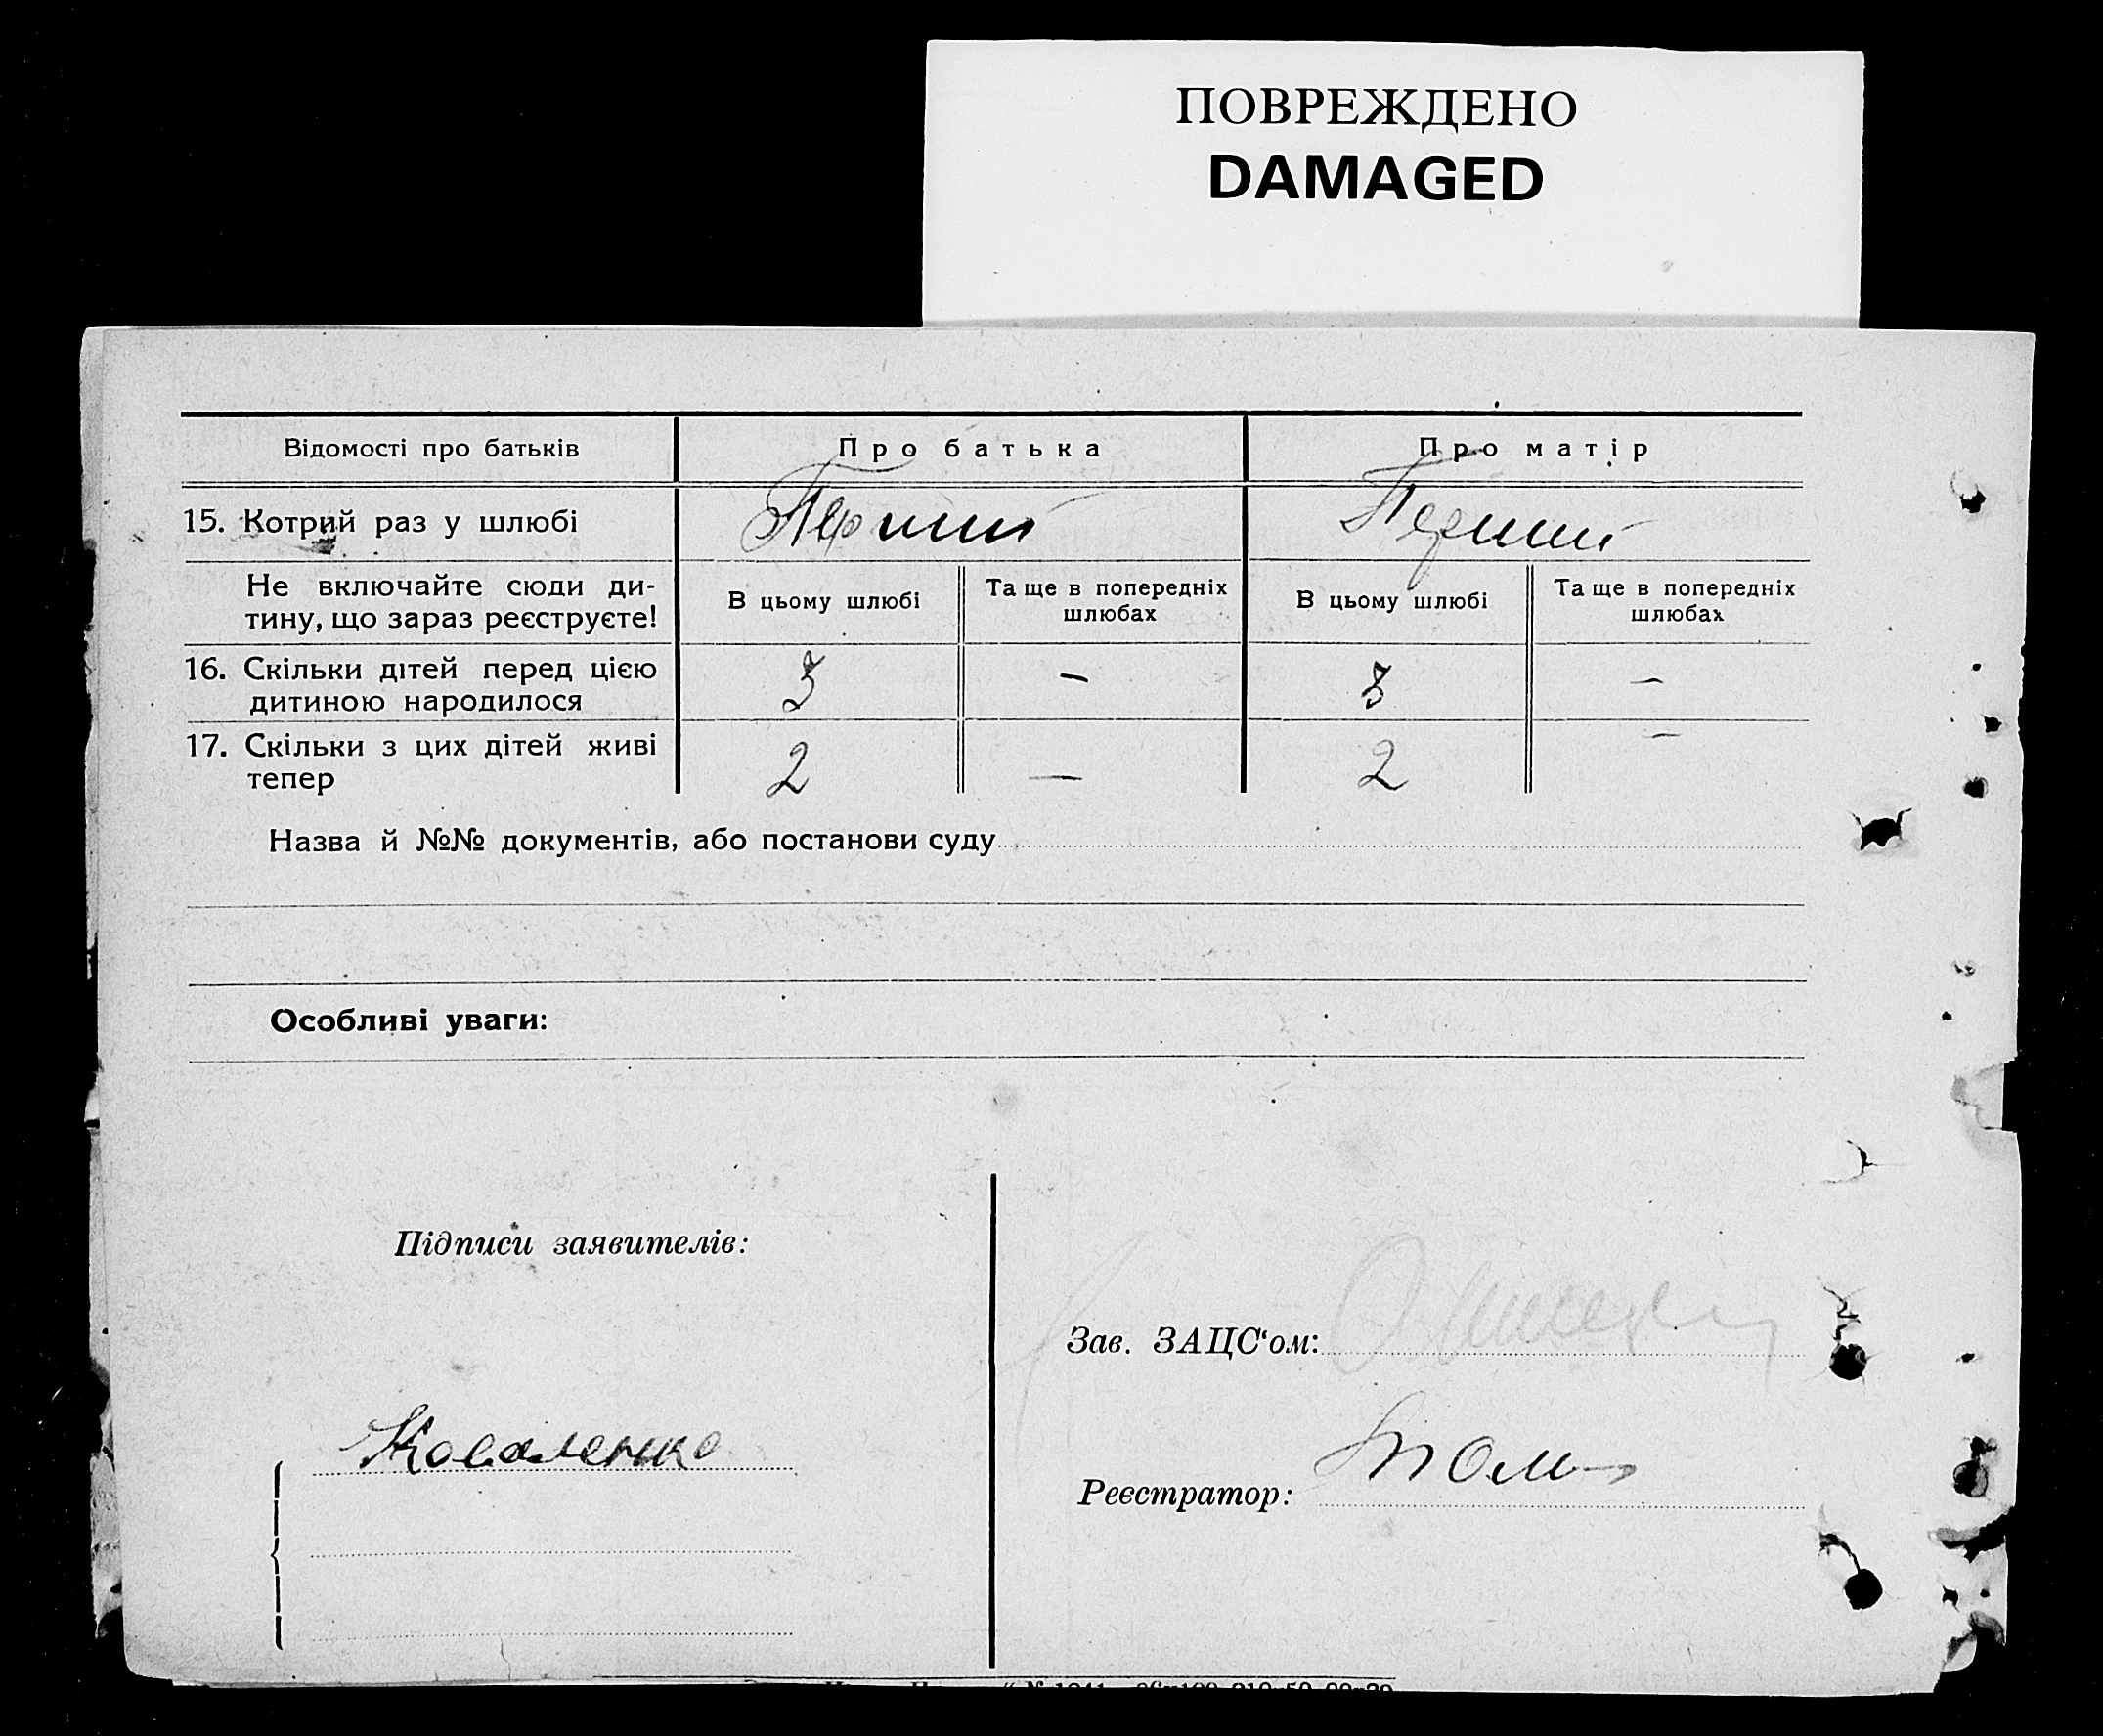 ПОВРЕЖДЕНО
DAMAGED
Відомості про батьків
Про батька
Про матір
15. Котрий раз у шлюбі
Перший
Перший
Не включайте сюди ди-
тину, що зараз реєструєте!
В цьому шлюбі
Та ще в попередніх
шлюбах
В цьому шлюбі
Та ще в попередніх
шлюбах
16. Скільки дітей перед цією
дитиною народилося
3
—
3
—
17. Скільки з цих дітей живі
тепер
2
—
2
—
Назва й №№ документів, або постанови суду
Особливі уваги:
Підписи заявителів:
Зав. ЗАЦС‘ом:
Коваленко
Реєстратор: